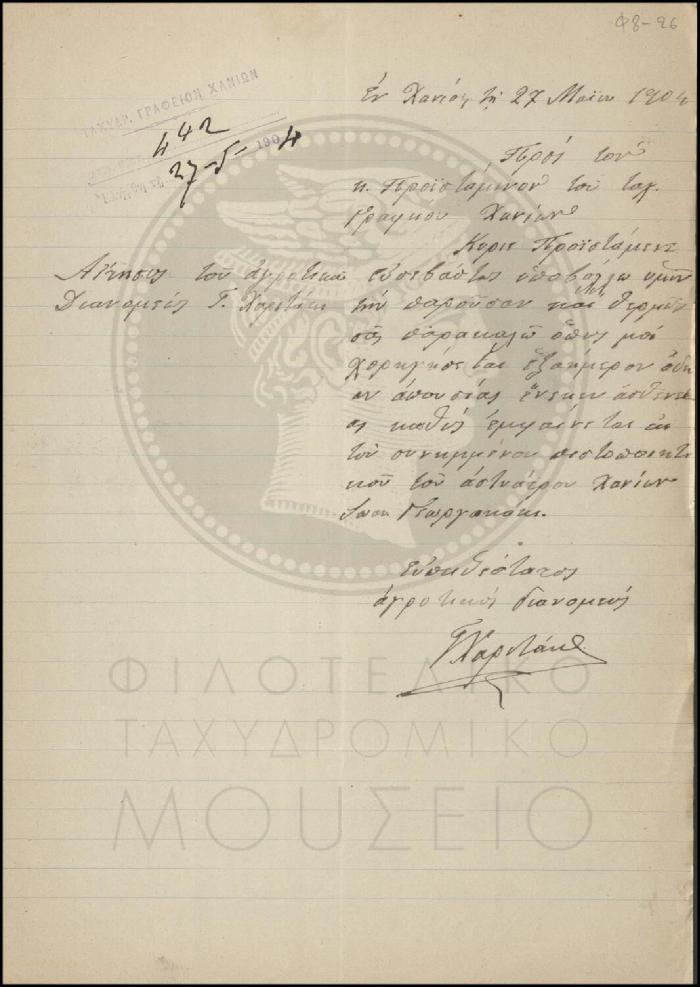 Φ8-26
ΤΑΧΥΔΡ. ΓΡΑΦΕΙΟΝ ΧΑΝΙΩΝ
442
27-5- 1904
Ἐν Χανίοις τῇ 27 Μαΐου 1904
Πρός τον
κ. Προϊστάμενον του ταχ.
Γραφείου Χανίων
Κύριε Προϊστάμενε
Αἴτησις του ἀγροτικοῦ
Διανομέως Γ. Χαριτάκη
εὐσεβάστως υποβάλλω υμῖν
τήν παροῦσαν και θερμῶς
σᾶς παρακαλῶ ὅπως μοι
χορηγήσεται ἑξαήμερον ἄδει
αν ἀπουσίας ἕνεκεν ἀσθενεί
ας καθώς ἐμφαίνεται ἐκ
τοῦ συνημμένου πιστοποιητι
κοῦ τοῦ ἀστυάτρου Χανίων
Γεωργακάκι.
εὐπειθέστατος
ἀγροτικός διανομεύς
Γ Χαριτάκις
ΦΙΛΟΤΕΛΙΚΟ
ΤΑΧΥΔΡΟΜΙΚΟ
ΜΟΥΣΕΙΟ